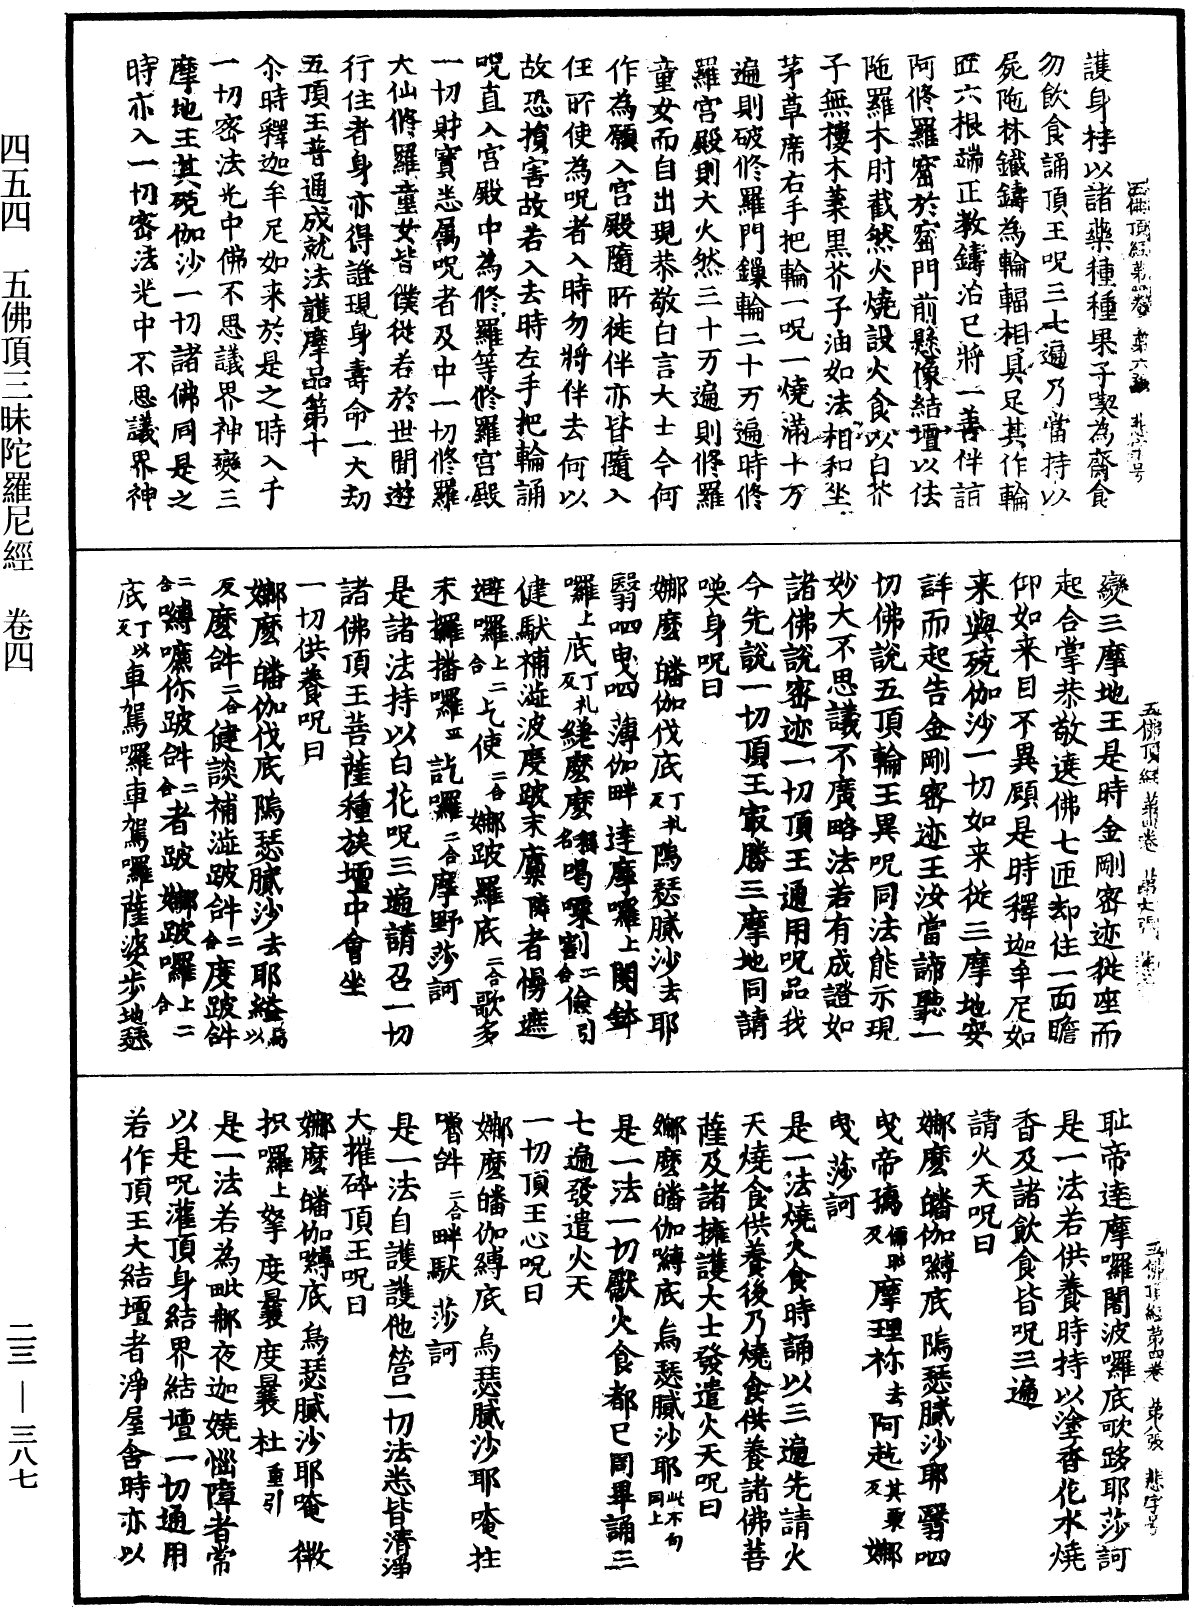 護身持以諸藥種種果子喫為齋食
勿飲食誦頂王呪三七遍乃當持以
屍陁林鐵鑄為輪輻相具足其作輪
匠六根端正教鑄治已將一善伴詣
阿修羅窟於窟門前懸像結壇以佉
陁羅木肘截然火燒設火食以白芥
子無𣛮木葉黑芥子油如法相和坐
茅草席右手把輪一呪一燒滿十万
遍則破修羅門鏁輪二十万遍時修
羅宫殿則大火然三十万遍則修羅
童女而自出現恭敬白言大士今何
作為願入宫殿隨所徒伴亦皆隨入
任所使為呪者入時勿將伴去何以
故恐損害故若入去時左手把輪誦
呪直入宫殿中為修羅等修羅宫殿
一切財寶悉属呪者及中一切修羅
大仙修羅童女皆僕從若於世間遊
行住者身亦得證現身壽命一大劫
五頂王普通成就法護摩品第十
尒時釋迦牟尼如来於是之時入于
一切密法光中佛不思議界神變三
摩地王其殑伽沙一切諸佛同是之
時亦入一切密法光中不思議界神
五佛頂經第四卷 第六張 悲字号
變三摩地王是時金剛密迹從座而
起合掌恭敬遶佛七匝却住一面瞻
仰如来目不異顧是時釋迦牟尼如
来與殑伽沙一切如来從三摩地安
詳而起告金剛密迹王汝當諦聽一
切佛說五頂輪王異呪同法能示現
妙大不思議不廣略法若有成證如
諸佛說密迹一切頂王通用呪品我
今先說一切頂王㝡勝三摩地同請
喚身呪曰
娜麼 皤伽伐底丁礼反 隖瑟膩沙去耶
翳呬曳呬 薄伽畔 達摩囉上闍
囉上底丁礼反 麼麼名稱 喝
健馱補澁波度跛末𪋻隣者
避囉上二合乞使二合娜跋羅底二合歌多
末攞播囉皿訖囉二合摩野莎訶
是諸法持以白花呪三遍請召一切
諸佛頂王菩薩種族壇中會坐
一切供養呪曰
娜麼 皤伽伐底隖瑟膩沙去耶
反麼𤙖二合健談補澁跛𤙖二合度跛𤙖
二合 縛嚩你跛𤙖二合者跛 娜跛囉上二合
底丁以反車駕囉車駕囉薩婆步地瑟
五佛頂經第四卷
耻帝達摩囉闍波囉底歌跢耶莎訶
是一法若供養時持以塗香花水燒
香及諸飲食皆呪三遍
請火天呪曰
娜麼 皤伽嚩底 隖瑟膩沙耶 翳呬
曳帝𤨏 摩理祢去 阿
曳 莎訶
是一法燒火食時誦以三遍先請火
天燒食供養後乃燒食供養諸佛菩
薩及諸擁護大士發遣火天呪曰
娜麼皤伽嚩底 烏瑟膩沙耶此不句同上
是一法一切獻火食都已周畢誦三
七遍發遣火天
一切頂王心呪曰
娜麼皤伽縛底 烏瑟膩沙耶唵拄
嚕𤙖二合畔馱 莎訶
是一法自護護他營一切法悉皆清淨
大摧碎頂王呪曰
娜麼 皤伽嚩底 烏瑟膩沙耶唵 微
枳囉上拏 度曩度曩 杜重引
是一法若為毗那夜迦嬈惱障者常
以是呪灌頂身結界結壇一切通用
若作頂王大結壇者淨屋舍時亦以
五佛頂經第四卷 第八張 悲字号
四五四 五佛頂三昧陀羅尼經 卷四
二三—三八七